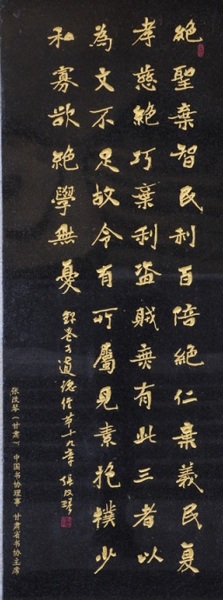 絕聖棄智民利百倍絕仁棄義民夏
孝慈絕巧棄利盜賊無有此三者以
為文不足故令有所屬見素抱樸少
私寡欲絕學無憂
錄老子道德經第十九章 張改琴
张改琴(甘肃) 中国书协理事 甘肃省书协主席